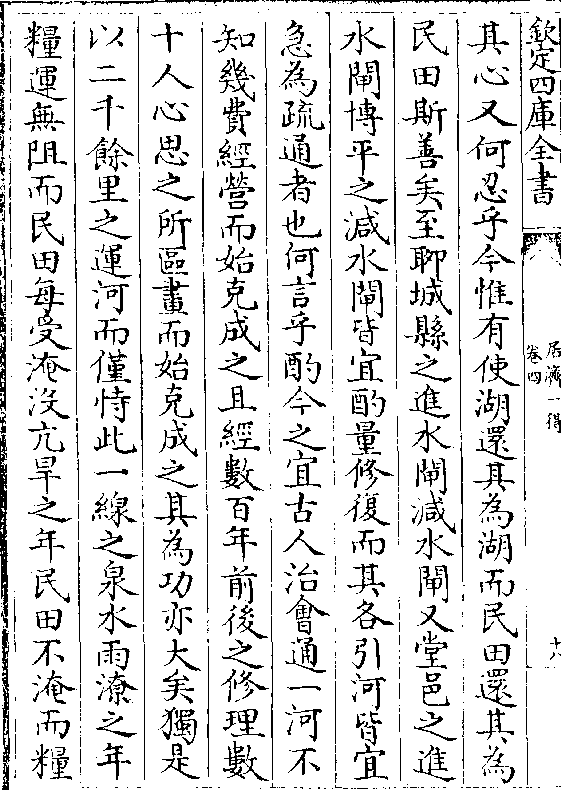 欽定四庫全書
居濟一得
卷四
十八
其心又何忍乎今惟有使湖還其為湖而民田還其為
民田斯善矣至聊城縣之進水閘減水閘又堂邑之進
水閘博平之減水閘皆宜酌量修復而其各引河皆宜
急為疏通者也何言乎酌今之宜古人治會通一河不
知幾費經營而始克成之且經數百年前後之修理數
十人心思之所區畫而始克成之其為功亦大矣獨是
以二千餘里之運河而僅恃此一線之泉水雨潦之年
糧運無阻而民田每受淹沒亢旱之年民田不淹而糧